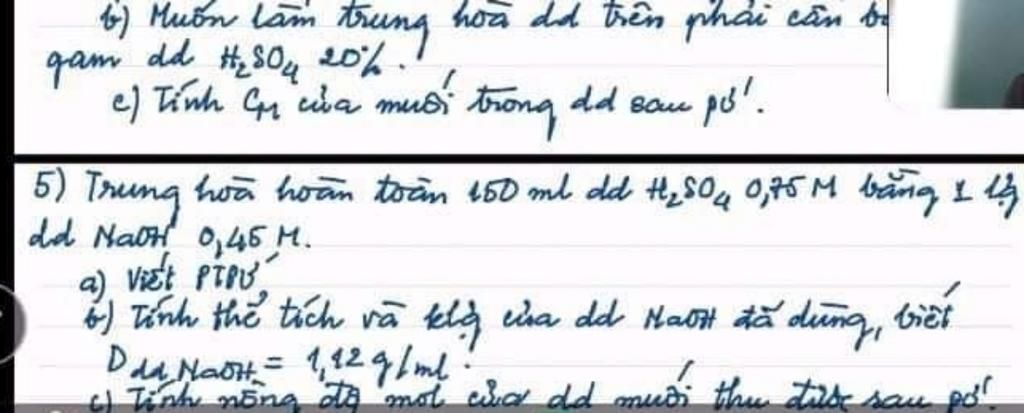 b) Muốn làm trung hoà dd trên phải cần
gam dd H₂SO₄ 20%.
c) Tính CM của muối trong dd sau pứ.
5) Trung hoà hoàn toàn 150 ml dd H₂SO₄ 0,75 M bằng 1 lg
dd NaOH 0,45 M.
a) Viết PTPƯ
b) Tính thể tích và klg của dd NaOH đã dùng, biết
D dd NaOH = 1,12 g/ml.
c) Tính nồng độ mol của dd muối thu được sau pứ